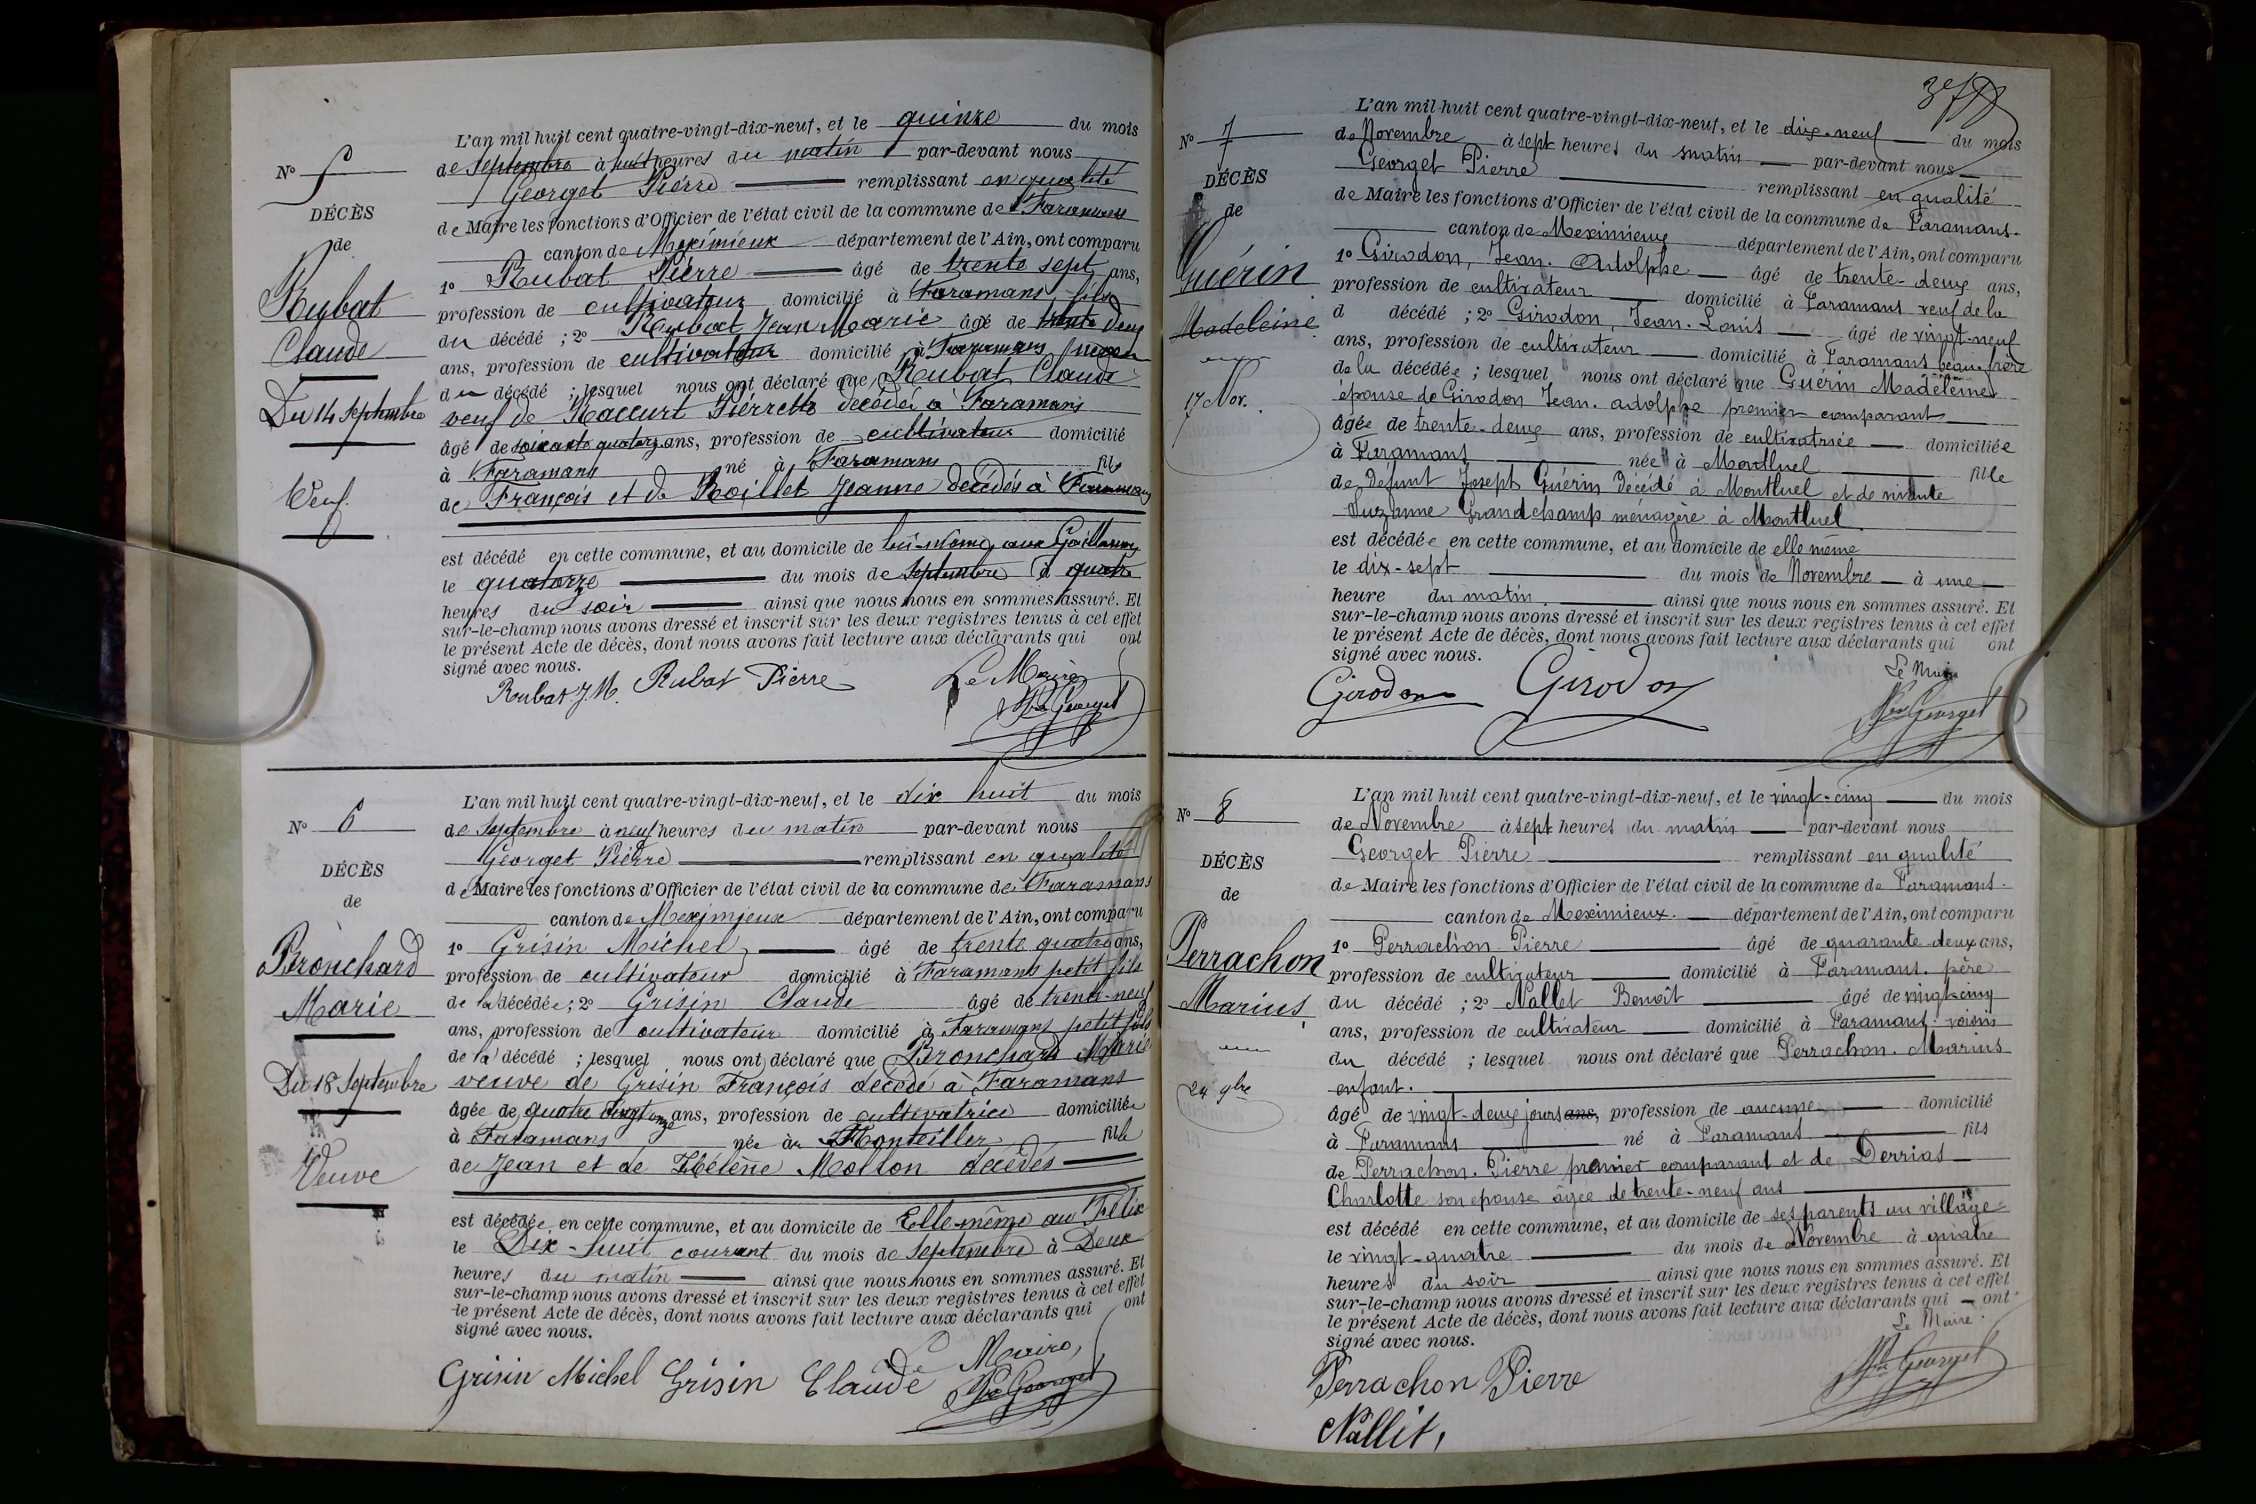 L'an mil huit cent quatre-vingt-dix-neuf, et le quinze du mois
de Septembre à huit heures du matin par-devant nous
Georget Pierre remplissant en qualité
de Maire les fonctions d'Officier de l'état civil de la commune de Faramans
canton de Meximieux département de l'Ain, ont comparu
1º Rubat Pierre âgé de trente sept ans,
profession de cultivateur domicilié à Faramans fils
du décédé ; 2º Rubat Jean Marie âgé de trente deux
ans, profession de cultivateur domicilié à Faramans neveu
du décédé ; lesquel nous ont déclaré que Rubat Claude
veuf de Pierrette décédée à Faramans
âgé de soixante quatorze ans, profession de cultivateur domicilié
à Faramans né à Faramans fils
de François et de Jeanne décédés à Faramans
est décédé en cette commune, et au domicile de lui-même aux
le quatorze du mois de Septembre à quatre
heures du soir ainsi que nous nous en sommes assuré. Et
sur-le-champ nous avons dressé et inscrit sur les deux registres tenus à cet effet
le présent Acte de décès, dont nous avons fait lecture aux déclarants qui ont
signé avec nous.
Rubat J.M. Rubat Pierre Le Maire
Georget
Nº 5
DÉCÈS
de
Rubat
Claude
Du 14 Septembre
Veuf
L'an mil huit cent quatre-vingt-dix-neuf, et le dix huit du mois
de Septembre à neuf heures du matin par-devant nous
Georget Pierre remplissant en qualité
de Maire les fonctions d'Officier de l'état civil de la commune de Faramans
canton de Meximieux département de l'Ain, ont comparu
1º Grisin Michel âgé de trente quatre ans,
profession de cultivateur domicilié à Faramans petit fils
de la décédée ; 2º Grisin Claude âgé de trente-neuf
ans, profession de cultivateur domicilié à Faramans petit fils
de la décédé ; lesquel nous ont déclaré que Bronchard Marie
veuve de Grisin François décédé à Faramans
âgée de quatre vingt onze ans, profession de cultivatrice domiciliée
à Faramans née au Montellier fille
de Jean et de Hélène Mollon décédés
est décédée en cette commune, et au domicile de Elle-même au Félix
le Dix-huit courant du mois de Septembre à Deux
heures du matin ainsi que nous nous en sommes assuré. Et
sur-le-champ nous avons dressé et inscrit sur les deux registres tenus à cet effet
le présent Acte de décès, dont nous avons fait lecture aux déclarants qui ont
signé avec nous.
Grisin Michel Grisin Claude Le Maire,
Georget
Nº 6
DÉCÈS
de
Bronchard
Marie
Du 18 Septembre
Veuve
L'an mil huit cent quatre-vingt-dix-neuf, et le dix-neuf du mois
de Novembre à sept heures du matin par-devant nous
Georget Pierre remplissant en qualité
de Maire les fonctions d'Officier de l'état civil de la commune de Faramans.
canton de Meximieux département de l'Ain, ont comparu
1º Girodon, Jean. Adolphe âgé de trente-deux ans,
profession de cultivateur domicilié à Faramans veuf de la
d décédé ; 2º Girodon, Jean. Louis âgé de vingt-neuf
ans, profession de cultivateur domicilié à Faramans beau-frère
de la décédée ; lesquel nous ont déclaré que Guérin Madeleine
épouse de Girodon Jean. adolphe premier comparant
âgée de trente-deux ans, profession de cultivatrice domiciliée
à Faramans née à Montluel fille
de Défunt Joseph Guérin Décédé à Montluel et de vivante
Suzanne Grandchamp ménagère à Montluel
est décédée en cette commune, et au domicile de elle même
le dix-sept du mois de Novembre à une
heure du matin. ainsi que nous nous en sommes assuré. Et
sur-le-champ nous avons dressé et inscrit sur les deux registres tenus à cet effet
le présent Acte de décès, dont nous avons fait lecture aux déclarants qui ont
signé avec nous.
Girodon Girodon Le Maire
Georget
Nº 7
DÉCÈS
de
Guérin
Madeleine
17 Nov.
L'an mil huit cent quatre-vingt-dix-neuf, et le vingt-cinq du mois
de Novembre à sept heures du matin par-devant nous
Georget Pierre remplissant en qualité
de Maire les fonctions d'Officier de l'état civil de la commune de Faramans.
canton de Meximieux. département de l'Ain, ont comparu
1º Perrachon Pierre âgé de quarante-deux ans,
profession de cultivateur domicilié à Faramans. père
du décédé ; 2º Nallet Benoît âgé de vingt-cinq
ans, profession de cultivateur domicilié à Faramans. voisin
du décédé ; lesquel nous ont déclaré que Perrachon. Marius
enfant.
âgé de vingt-deux jours ans, profession de aucune domicilié
à Faramans né à Faramans fils
de Perrachon. Pierre premier comparant et de Derrias
Charlotte son epouse âgée de trente-neuf ans
est décédé en cette commune, et au domicile de ses parents au village
le vingt-quatre du mois de Novembre à quatre
heures du soir ainsi que nous nous en sommes assuré. Et
sur-le-champ nous avons dressé et inscrit sur les deux registres tenus à cet effet
le présent Acte de décès, dont nous avons fait lecture aux déclarants qui ont
signé avec nous. Le Maire.
Perrachon Pierre Georget
Nallit,
Nº 8
DÉCÈS
de
Perrachon
Marius
24 9bre